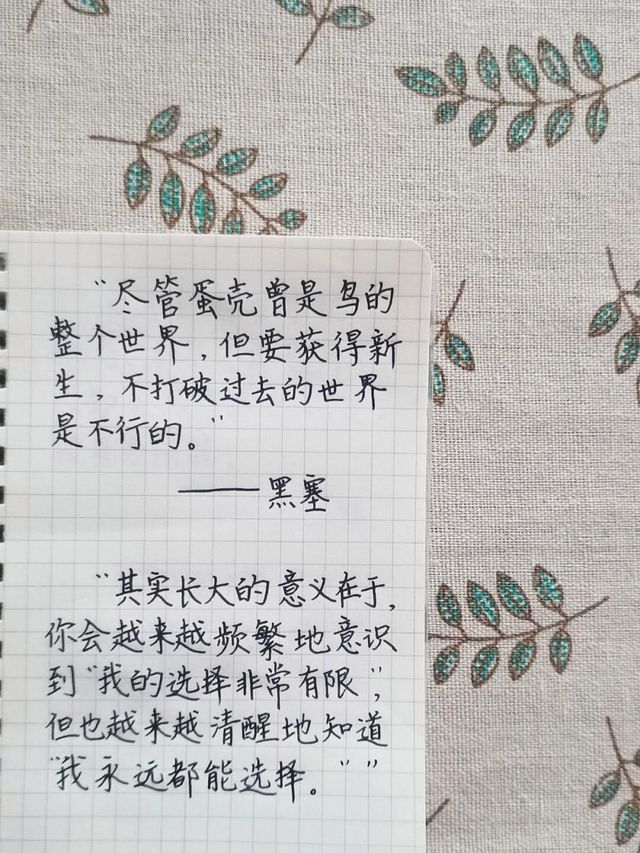 “尽管蛋壳曾是鸟的
整个世界，但要获得新
生，不打破过去的世界
是不行的。”
——黑塞
“其实长大的意义在于，
你会越来越频繁地意识
到“我的选择非常有限”，
但也越来越清醒地知道
“我永远都能选择。””